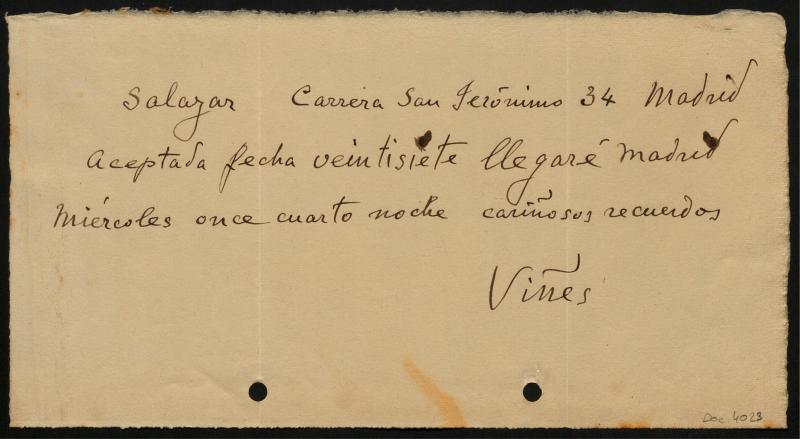 Salazar Carrera San Jerónimo 34 Madrid
Aceptada fecha veintisiete llegaré Madrid
Miércoles once cuarto noche cariñosos recuerdos
Viñes
Doc. 4023